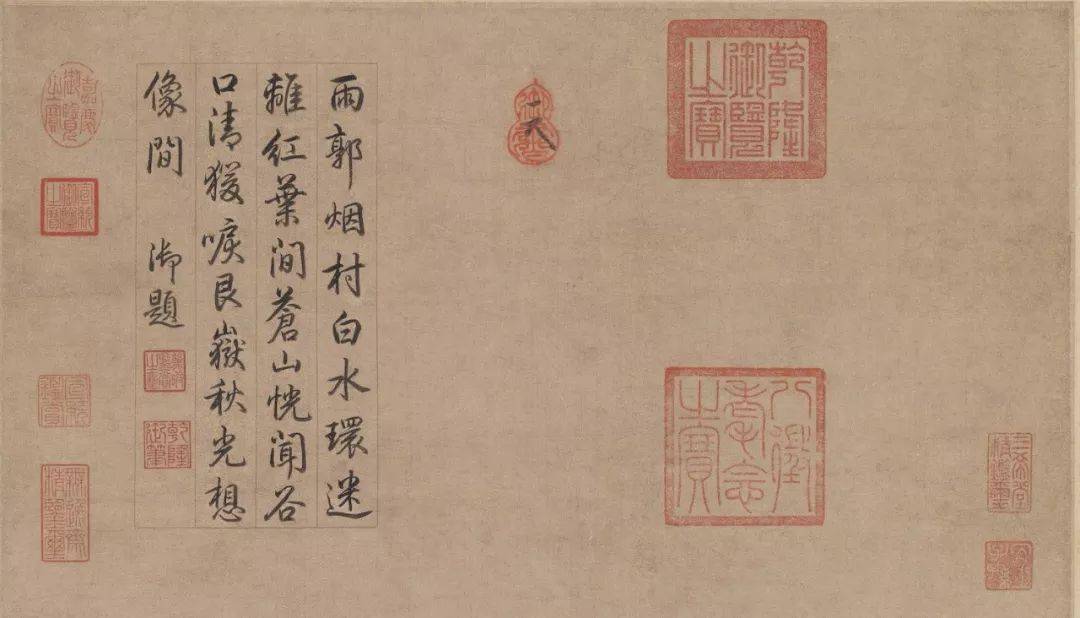 三希堂精鑑璽
宜子孫
乾隆御覽之寶
八徵耄念之寶
御書
雨郭烟村白水環迷
離紅葉間蒼山恍聞谷
口清猨唳艮嶽秋光想
像間 御題
乾隆御筆
嘉慶御覽之寶
宣統御覽之寶
宣統鑑賞
無逸齋精鑑璽